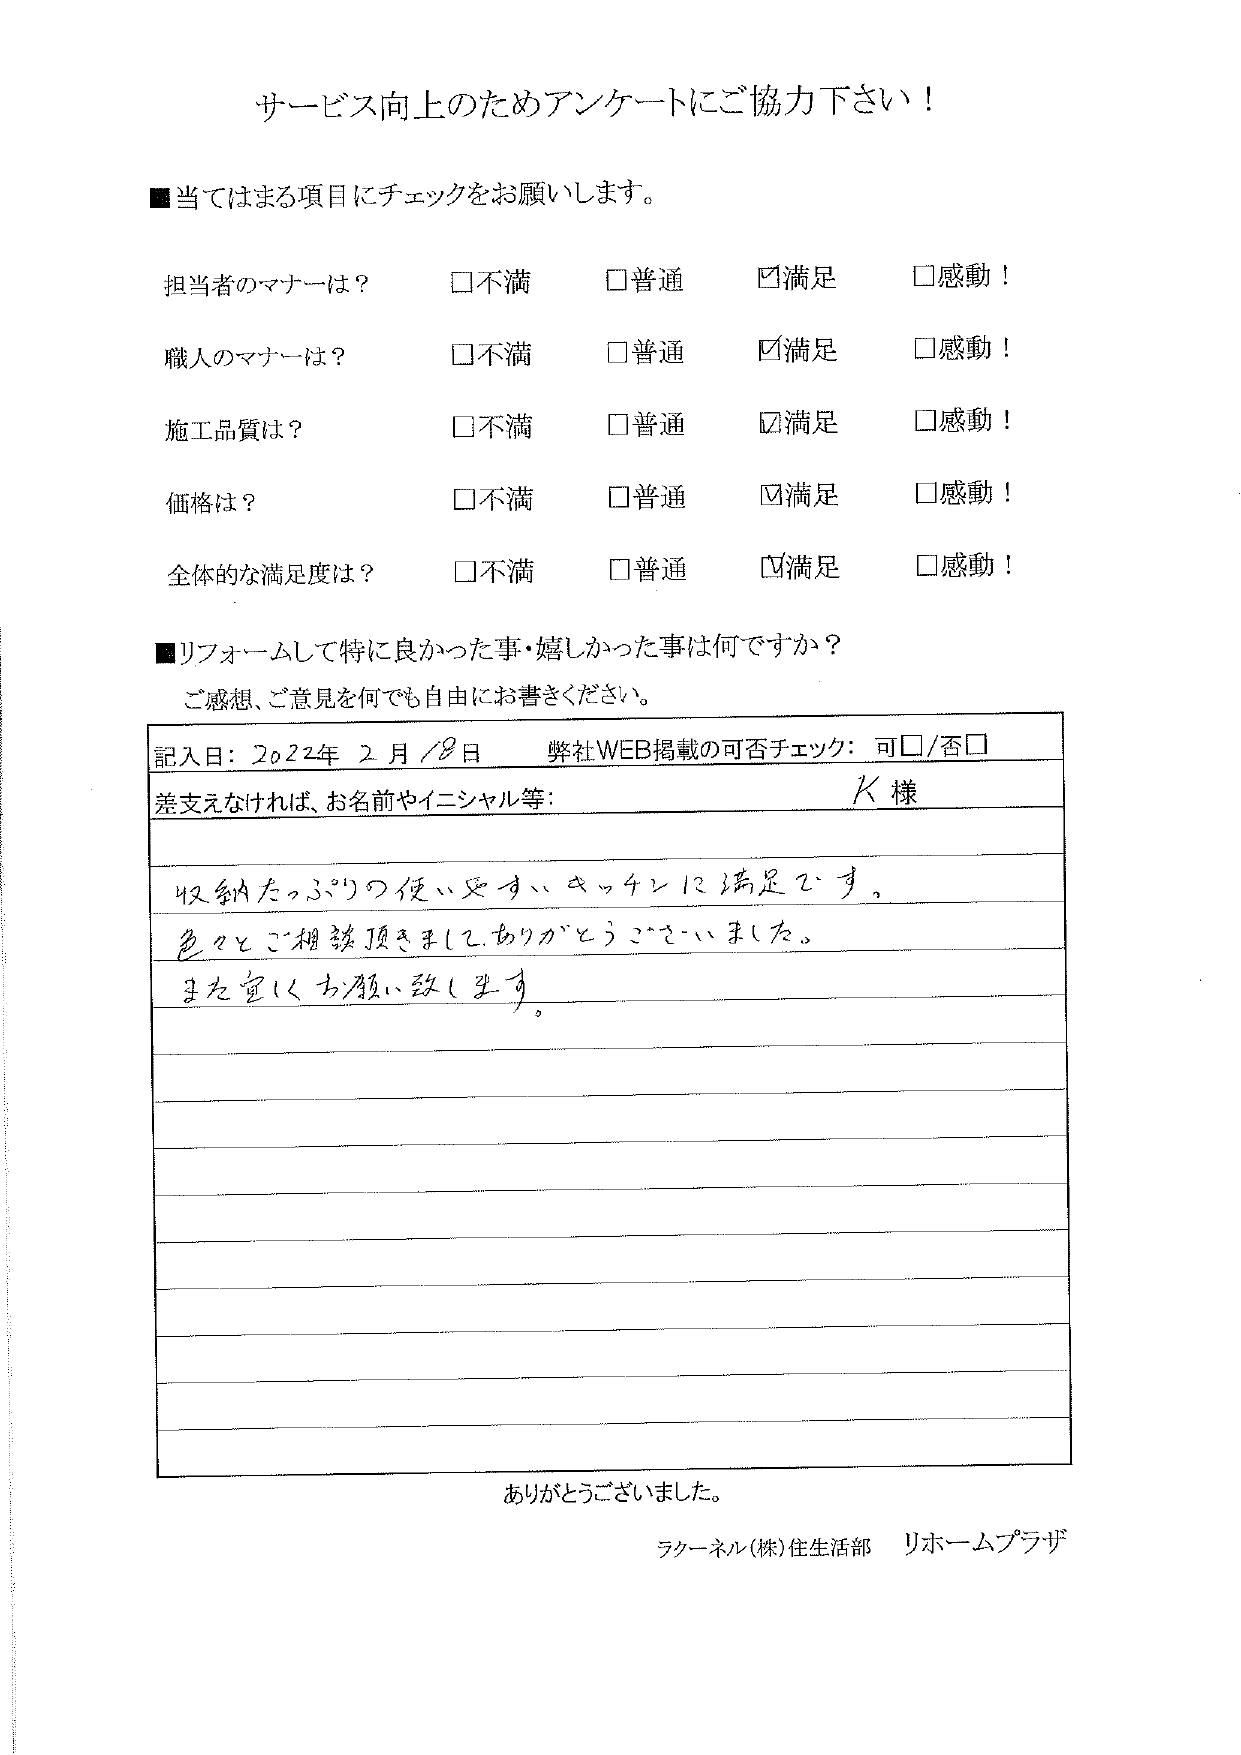 サービス向上のためアンケートにご協力下さい！
■当てはまる項目にチェックをお願いします。
担当者のマナーは？ □不満 □普通 ☑満足 □感動！
職人のマナーは？ □不満 □普通 ☑満足 □感動！
施工品質は？ □不満 □普通 ☑満足 □感動！
価格は？ □不満 □普通 ☑満足 □感動！
全体的な満足度は？ □不満 □普通 ☑満足 □感動！
■リフォームして特に良かった事・嬉しかった事は何ですか？
ご感想、ご意見を何でも自由にお書きください。
記入日： 2022年 2月 18日 弊社WEB掲載の可否チェック： 可□/否□
差支えなければ、お名前やイニシャル等： K 様
収納たっぷりの使いやすいキッチンに満足です。
色々とご相談頂きまして、ありがとうございました。
また宜しくお願い致します。
ありがとうございました。
ラクーネル（株）住生活部 リホームプラザ